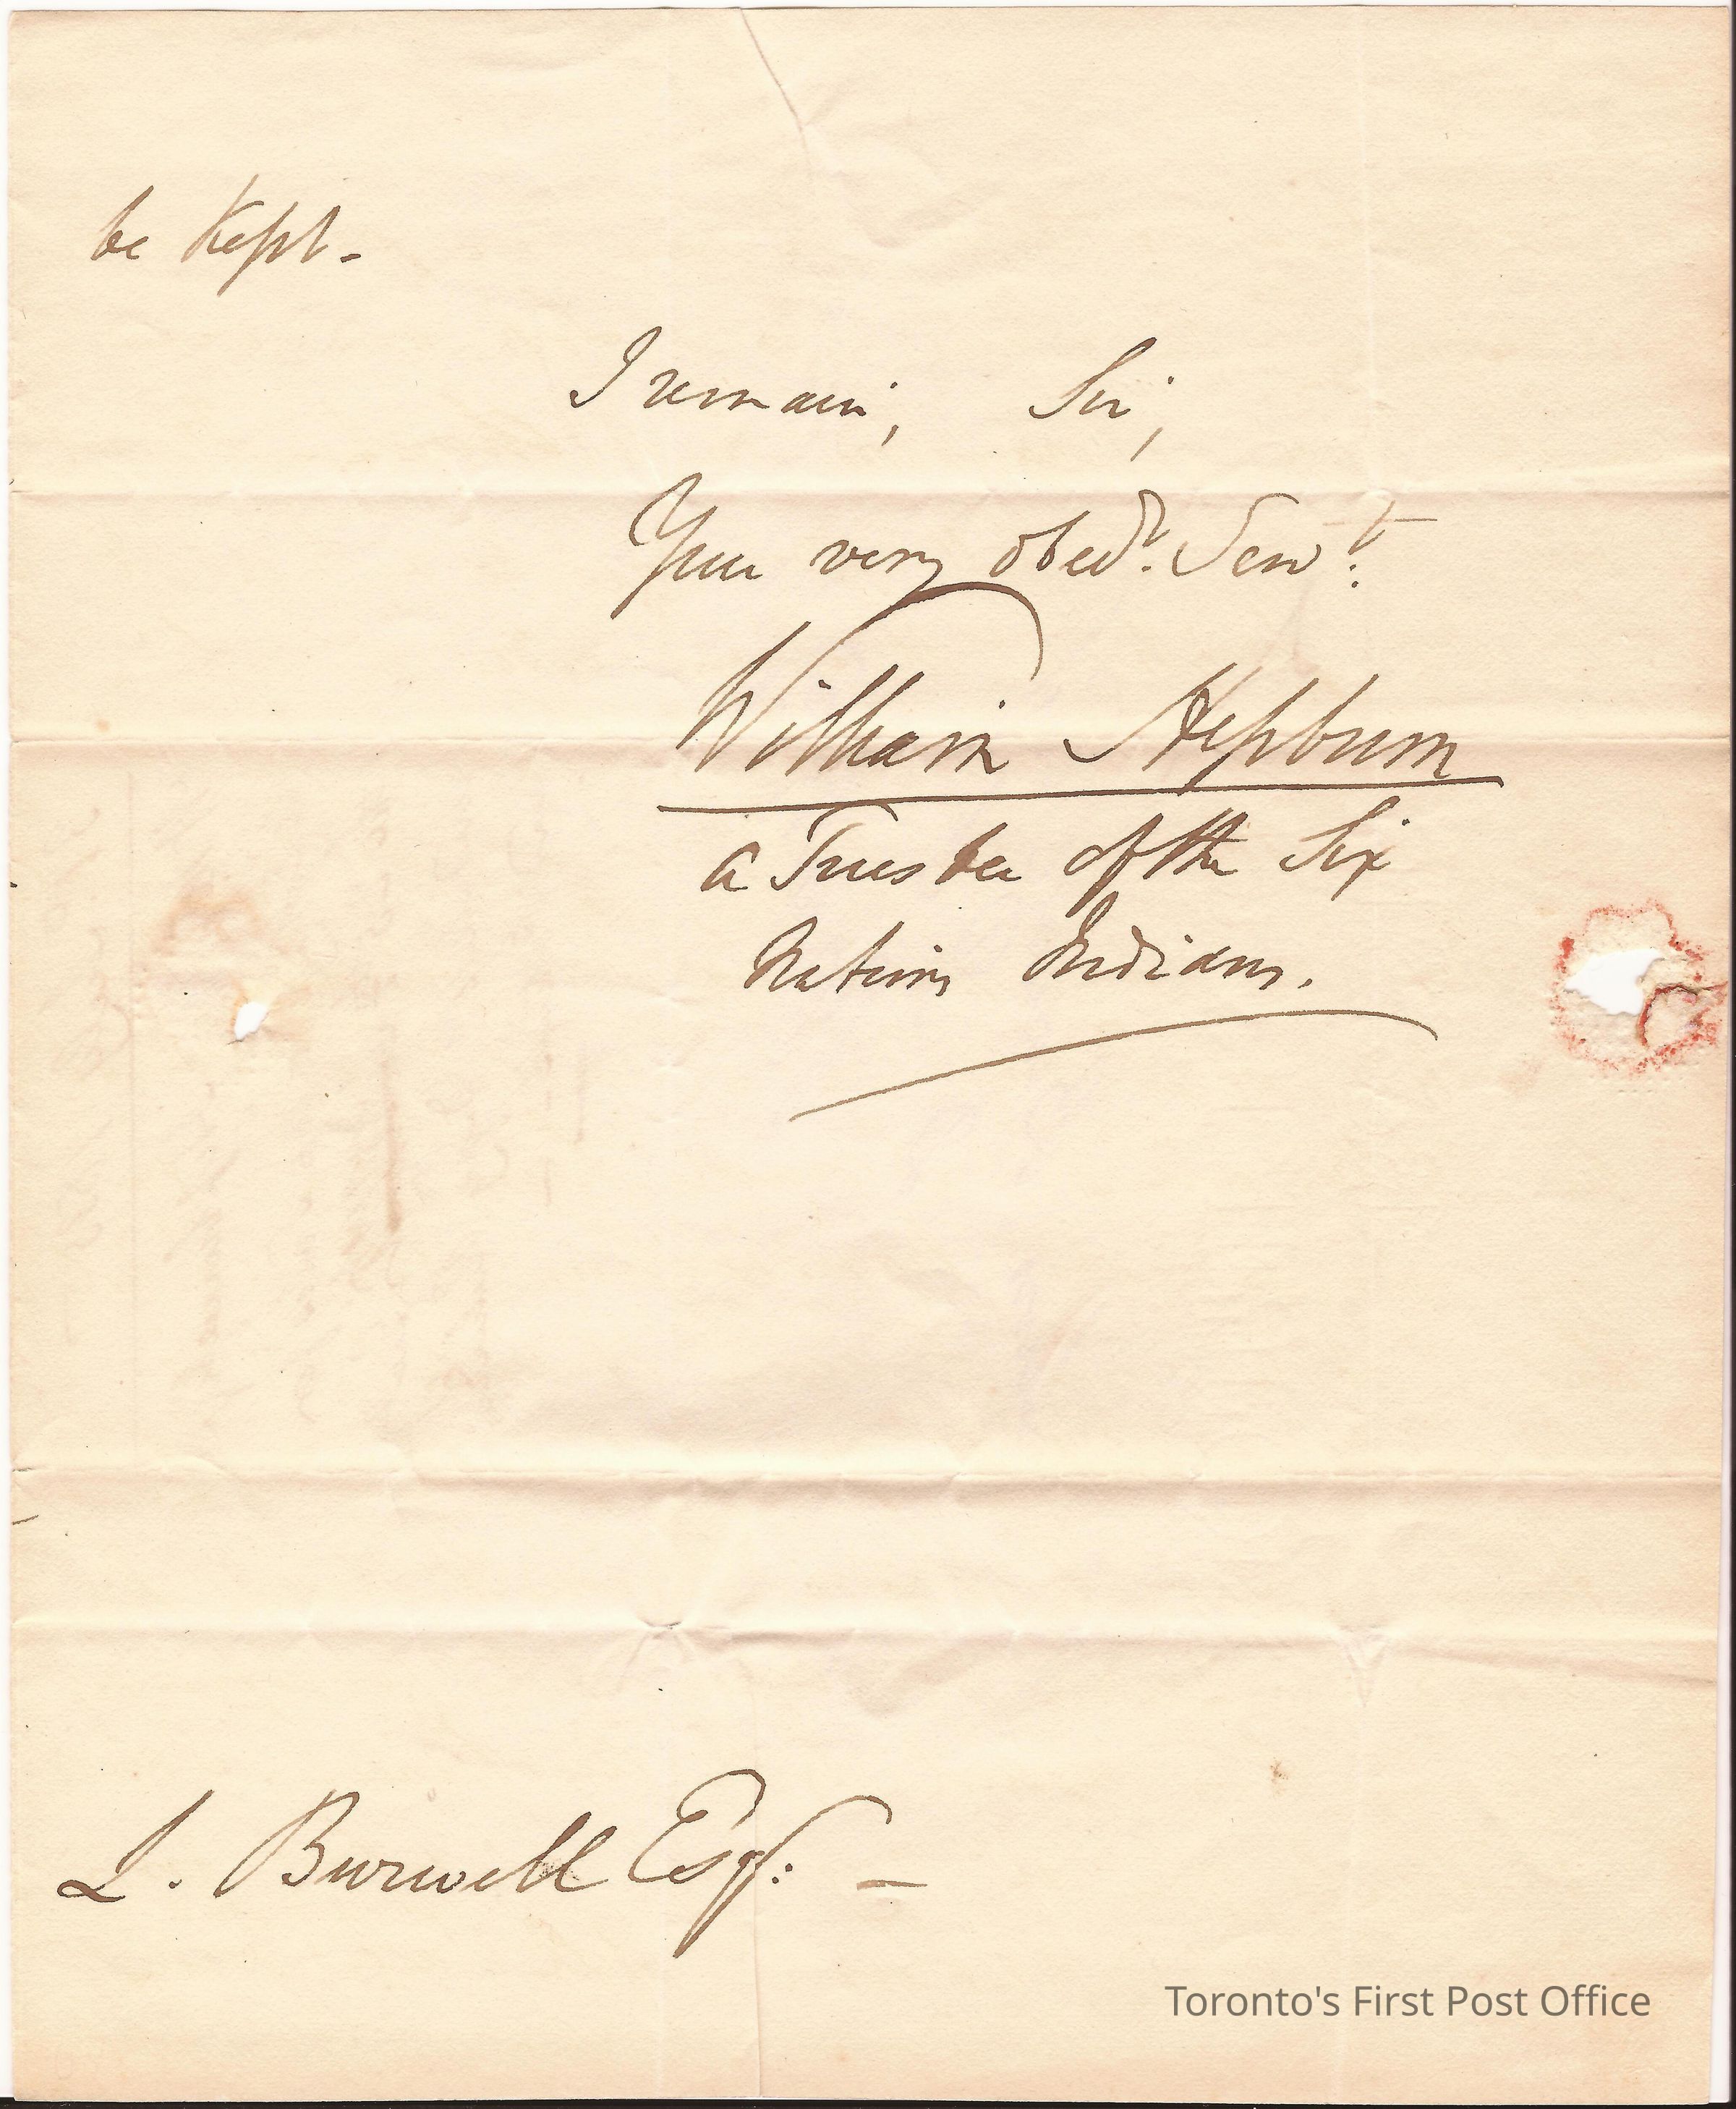 be Kept -
I remain, Sir,
Your very obedt. Servt.
William Hepburn
a Trustee of the Six
Nations Indians.
L. Burwell Esqr: -
Toronto's First Post Office